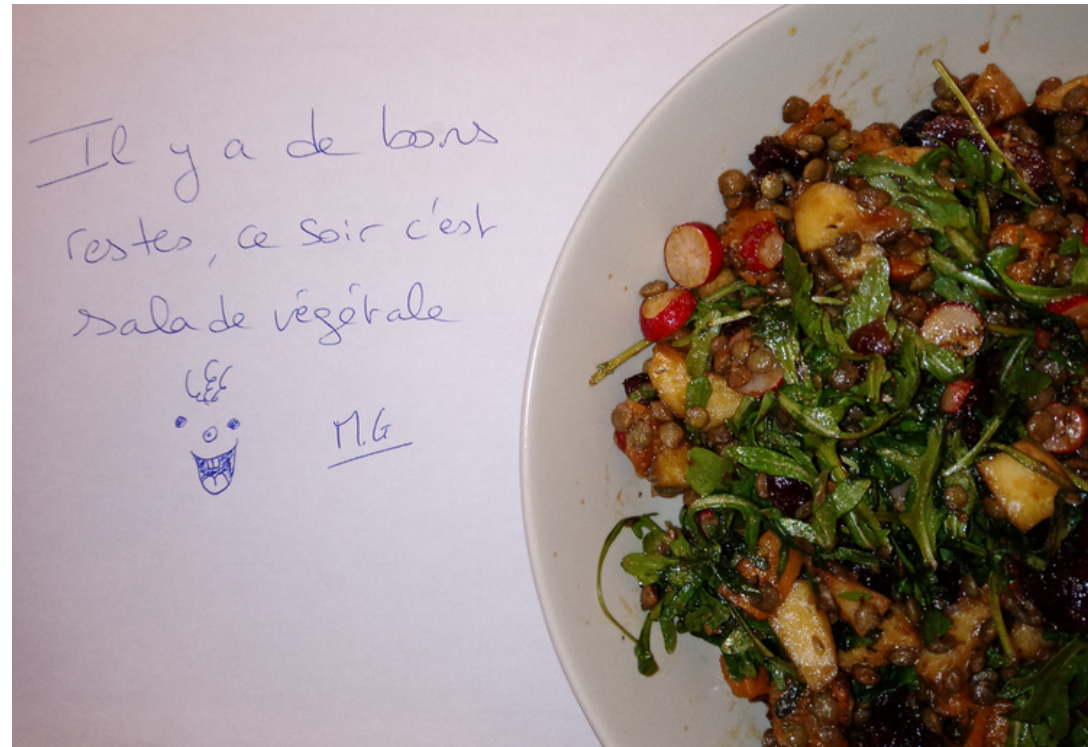 Il y a de bons
restes, ce soir c'est
salade végétale
M.G